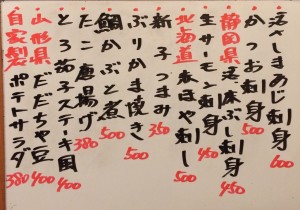 活〆さまあじ刺身 600
かつお刺身 500
静岡県 活〆本ぶし刺身 450
生サーモン刺身 450
北海道 本ほや刺し 500
新子つまみ 350
ぶりかま焼き 500
鯛かぶと煮 500
たこ唐揚げ 380
とろ茄子ステーキ風 400
山形県 だだちゃ豆 400
自家製 ポテトサラダ 380